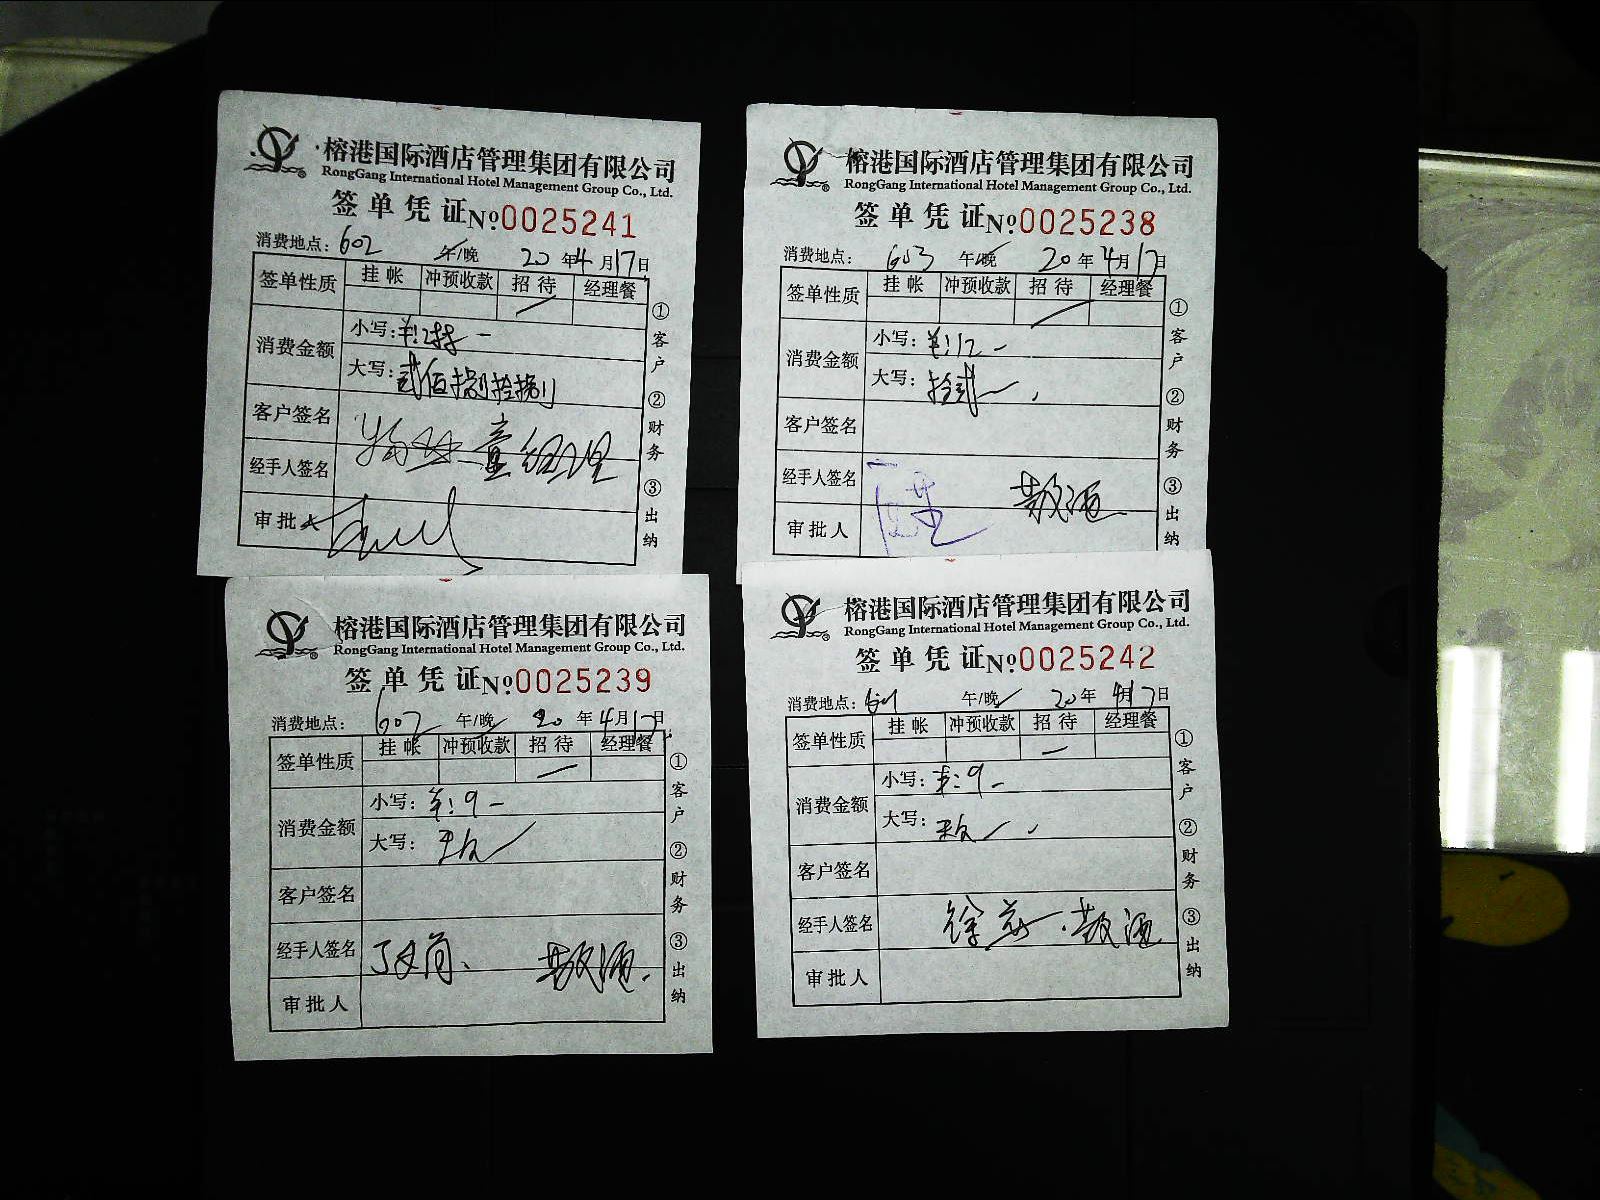 榕港国际酒店管理集团有限公司
RongGang International Hotel Management Group Co., Ltd.
签单凭证 №0025241
消费地点：602 午/晚 20年4月17日
签单性质 挂帐 冲预收款 招待 经理餐
消费金额 小写：¥:288－
大写：贰佰捌拾捌
客户签名
经手人签名 童经理
审批人
①客户 ②财务 ③出纳
榕港国际酒店管理集团有限公司
RongGang International Hotel Management Group Co., Ltd.
签单凭证 №0025238
消费地点：603 午/晚 20年4月17日
签单性质 挂帐 冲预收款 招待 经理餐
消费金额 小写：¥:12－
大写：拾贰
客户签名
经手人签名 散酒
审批人
①客户 ②财务 ③出纳
榕港国际酒店管理集团有限公司
RongGang International Hotel Management Group Co., Ltd.
签单凭证 №0025239
消费地点：602 午/晚 20年4月17日
签单性质 挂帐 冲预收款 招待 经理餐
消费金额 小写：¥:9－
大写：玖
客户签名
经手人签名 散酒
审批人
①客户 ②财务 ③出纳
榕港国际酒店管理集团有限公司
RongGang International Hotel Management Group Co., Ltd.
签单凭证 №0025242
消费地点：601 午/晚 20年4月17日
签单性质 挂帐 冲预收款 招待 经理餐
消费金额 小写：¥:9－
大写：玖
客户签名
经手人签名 散酒
审批人
①客户 ②财务 ③出纳